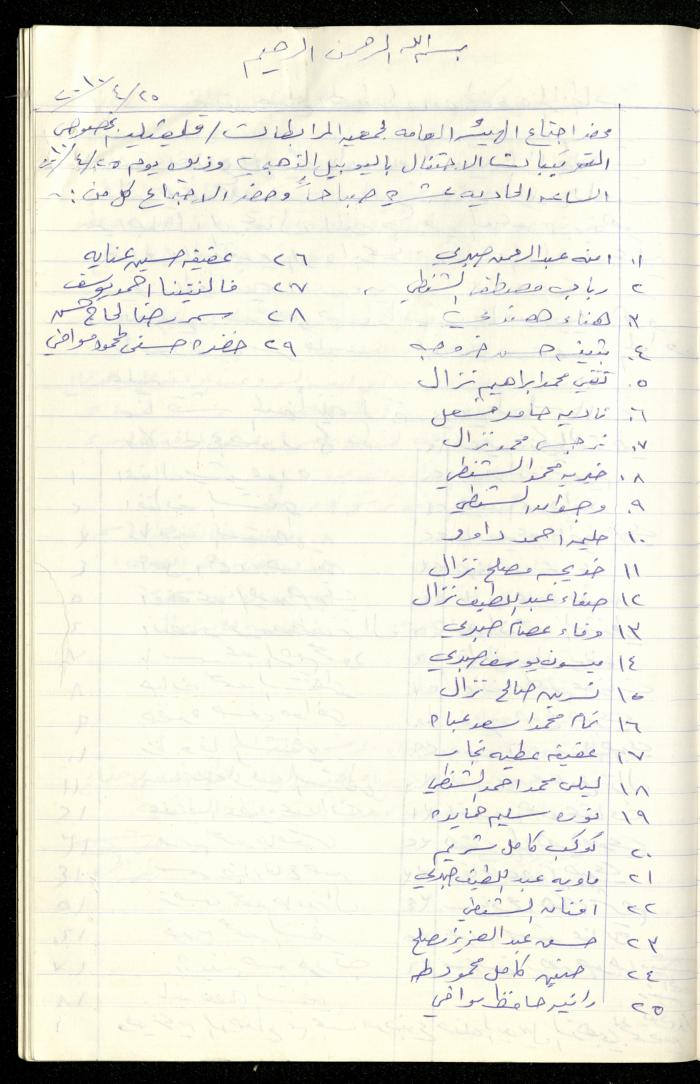 بسم الله الرحمن الرحيم
٢٠١٠/٤/٢٥
محضر اجتماع الهيئه العامه لجمعيه المرابطات / قلقيليه بخصوص
الترتيبات الاحتفال باليوبيل الذهبي وذلك يوم ٢٠١٠/٤/٢٥
الساعه الحاديه عشرة صباحاً وحضر الاجتماع كل من :-
١. امنه عبدالرحمن صبري
٢. رباب مصطفى الشنطي
٣. هناء هنداوي
٤. بثينه حسن خروبه
٥. تقى محمد ابراهيم نزال
٦. ناديه حامد مشعل
٧. نرجس محمد نزال
٨. خديه محمد الشنطي
٩. وجدان الشنطي
١٠. حليمه احمد داود
١١ خديجه مصلح نزال
١٢ صفاء عبد اللطيف نزال
١٣ وفاء عصام صبري
١٤ ميسون يوسف صبري
١٥ نسرين صالح نزال
١٦ تمام محمد اسعد عباه
١٧ عفيفه عطيه نجار
١٨ ليلى محمد احمد الشنطي
١٩ نوره سليم حمايده
٢٠ كوكب كامل شريم
٢١ ماويه عبد اللطيف صبري
٢٢ افنان الشنطي
٢٣ حسن عبد العزيز مصلح
٢٤ حنين كامل محمود طه
٢٥ رانية حافظ موافي
٢٦ عفيفه حسين عنايه
٢٧ فالنتينا احمد يوسف
٢٨ سمر رضا الحاج حسن
٢٩ خضره حسني محمود موافي